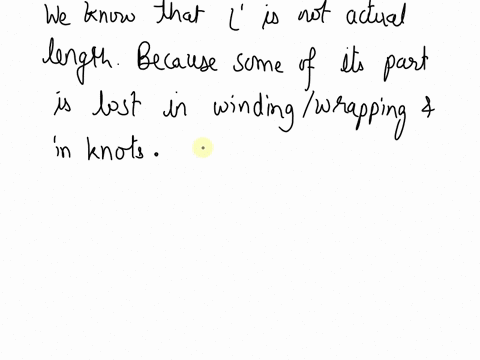 We know that L' is not actual
length. Because some of its part
is lost in winding/wrapping &
in knots.